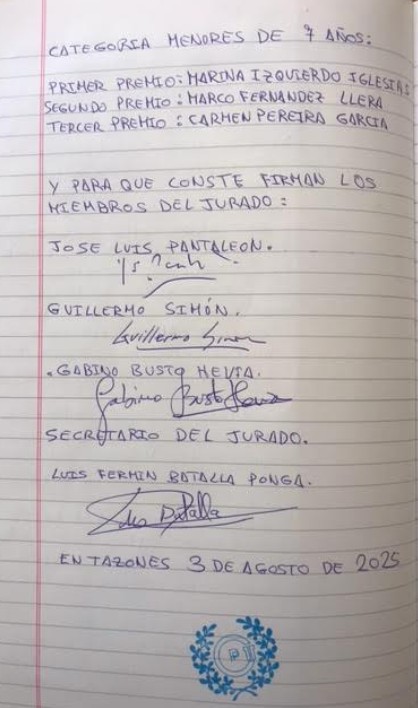 CATEGORIA MENORES DE 7 AÑOS:
PRIMER PREMIO: MARINA IZQUIERDO IGLESIAS
SEGUNDO PREMIO: MARCO FERNANDEZ LLERA
TERCER PREMIO: CARMEN PEREIRA GARCIA
Y PARA QUE CONSTE FIRMAN LOS
MIEMBROS DEL JURADO:
JOSE LUIS PANTALEON.
GUILLERMO SIMÓN.
Guillermo Simon
. GABINO BUSTO HEVIA.
Gabino Busto Hevia
SECRETARIO DEL JURADO.
LUIS FERMIN BATALLA PONGA.
Luis Batalla
EN TAZONES 3 DE AGOSTO DE 2025